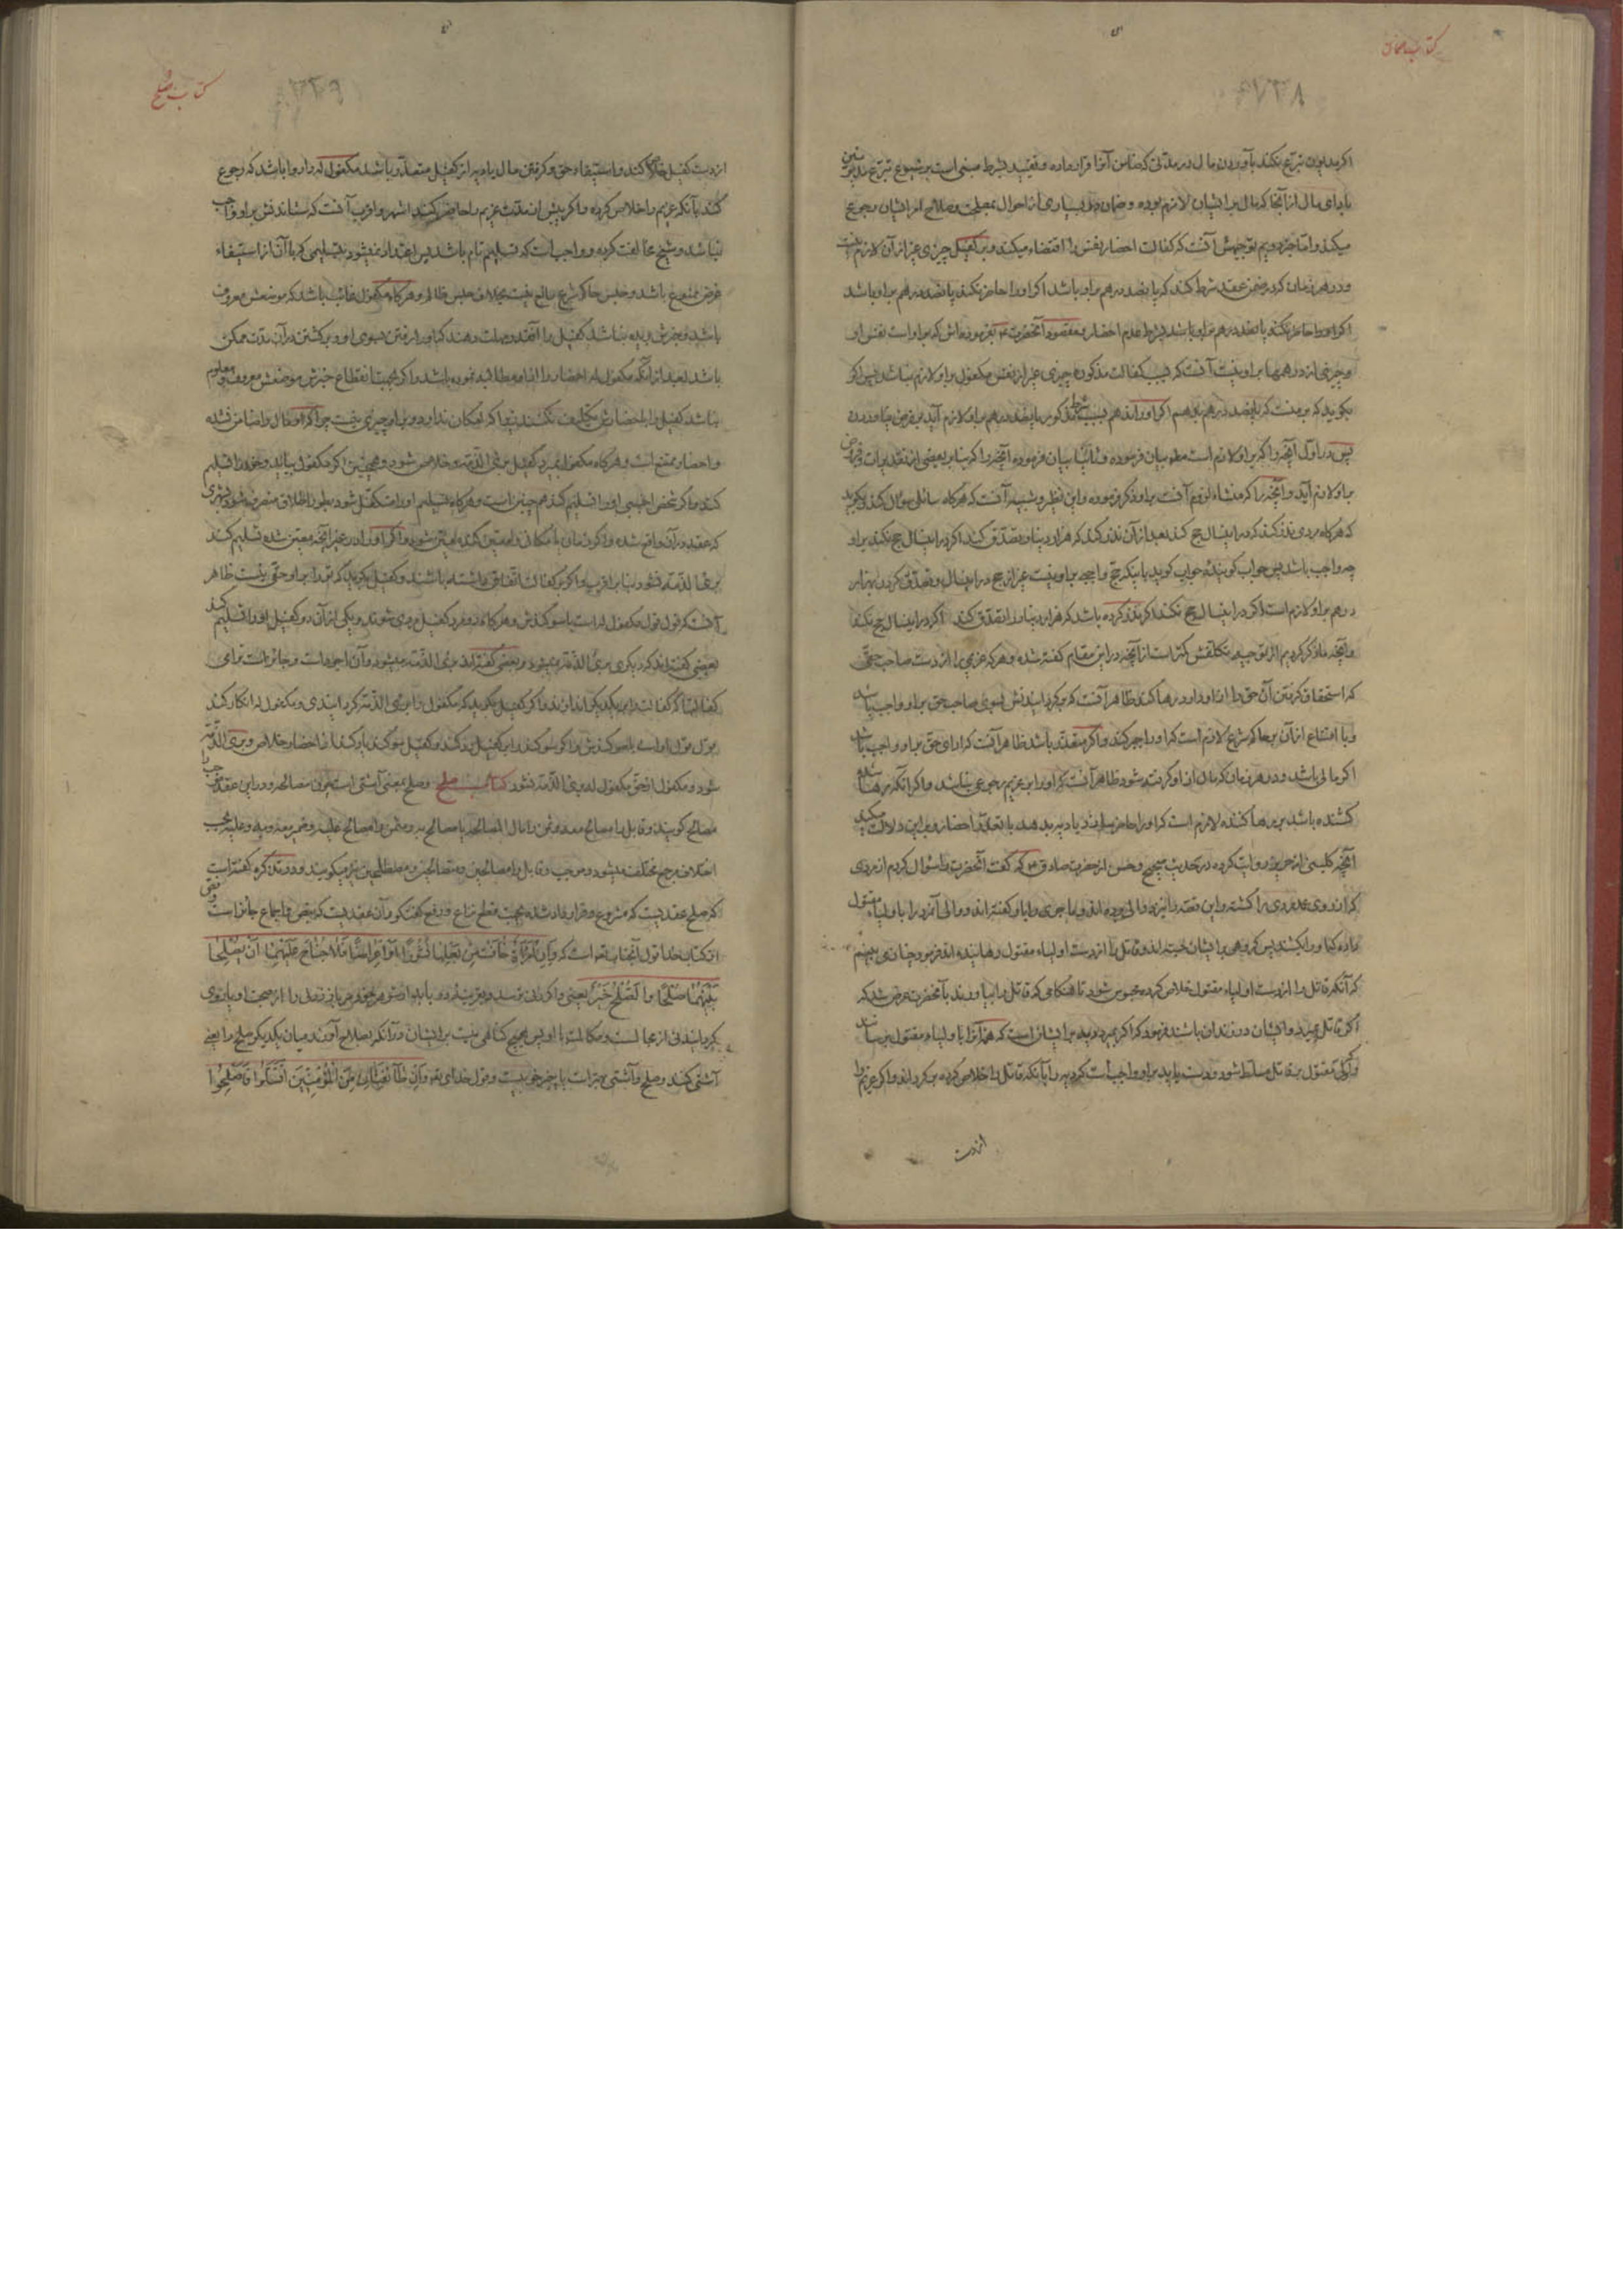 کتاب ضمان
۸۲۳۸
اکر مدیون تبرّع نکند بآوردن مال در مدتی که ضامن آنرا قرار داده و تقیید بشرط مبنی است بر شیوع تبرّع مدیونین
بادای مال از آنجا که مال بر ایشان لازم بوده و ضمان در بسیاری از احوال بمصلحت و صلاح ایشان رجوع
میکند و امّا جزء دویم توجیهش آنست که کفالت احضار نفس را اقتضاء میکند و بر کفیل چیزی غیر از آن لازم نیست
و در هر زمان که در ضمن عقد شرط کند که پانصد درهم بر او باشد اکر او را حاضر نکند پانصد درهم بر او باشد
اکر او را حاضر نکند پانصد درهم بر او باشد بشرط عدم احضار و مقصود آنحضرت
و چیزی از درهمها بر او نیست آنست که بسبب کفالت مذکوره چیزی غیر از نفس مکفول بر او لازم نباشد پس اکر
بکوید که بر منست که پانصد درهم بدهم اکر او را ندهم بسبب شرط مذکور پانصد درهم بر او لازم آید
پس در اول آنچه را که بر او لازم است بیان فرموده و ثانیا بیان فرموده آنچه را که بنابر بعضی از تقدیرات
بر او لازم آید و آنچه را که منشاء لزوم آنست بر او ذکر فرموده و این نظیر و شبیه آنست که هرکاه سائلی سؤال کند و بکوید
که هرکاه مردی نذر کند که در اینسال حج کند بعد از آن نذر کند که هزار دینار تصدّق کند اکر در اینسال حج نکند بر او
چه واجب باشد پس جواب کوینده جواب کوید باینکه حج واجبه بر او نیست غیر از حج در اینسال و تصدّق کردن بهزار
درهم بر او لازم است اکر در اینسال حج نکند اکر نذر کرده باشد که هزار دینار را تصدّق کند اکر در اینسال حج نکند
و آنچه ما ذکر کردیم از توجیه تکلّفش کمتر است از آنچه در این مقام کفته شده و هرکه غریمی را از دست صاحب حقّی
که استحقاق کرفتن آن حق را از او دارد رها کند ظاهر آنست که برکردانیدنش بسوی صاحب حق بر او واجب باشد
و با امتناع از آن بر حاکم شرع لازم است که او را جبر کند و اکر متعذّر باشد ظاهر آنست که ادای حق بر او واجب باشد
اکر مالی باشد و در هر زمان که مال از او کرفته شود ظاهر آنست که او را بر غریم رجوعی نباشد و اکر آنکه رها شده
کشنده باشد بر رها کننده لازم است که او را حاضر سازد یا دیه بدهد با تعذّر احضار و بر این دلالت میکند
آنچه کلینی از حریز روایت کرده در حدیث صحیح و حسن از حضرت صادق ع که کفت آنحضرت را سؤال کردم از مردی
که از روی عمد مردی را کشته و این قصه را نزد والی برده اند و والی آنمرد را باولیاء مقتول
داده که او را بکشند پس کروهی بر ایشان جسته اند و قاتل را از دست اولیاء مقتول رهانیده اند فرمود چنان می بینم
که آنکه قاتل را از دست اولیاء مقتول خلاص کرده محبوس شود تا هنکامی که قاتل را بیاورند بآنحضرت عرض شد که
اکر قاتل بمیرد و ایشان در زندان باشند فرمود که اکر بمیرد دیه بر ایشان است که همه آنرا باولیاء مقتول برسانند
و اکر ولی مقتول بر قاتل مسلّط شود و دست یابد بر او واجبست که دیه را بآنکه قاتل را خلاص کرده برکرداند و اکر غریم را
از دست
کتاب صلح
از دست کفیل خلاص کند و استیفاء حق و کرفتن مال یا دیه از کفیل متعذّر باشد مکفول له را روا باشد که رجوع
کند بآنکه غریم را خلاص کرده و اکر پیش از مدت غریم را حاضر کند اشهر و اقرب آنست که ستاندنش بر او واجب
نباشد و شیخ مخالفت کرده و واجب است که تسلیم تام باشد پس اعتداد نمیشود بتسلیمی که با آن از استیفاء
غرض ممنوع باشد و حبس حاکم شرع مانع نیست بخلاف حبس ظالم و هرکاه مکفول غائب باشد که موضعش معروف
باشد و خبرش بریده نباشد کفیل را آنقدر مهلت دهند که او را رفتن بسوی او و برکشتن در آن مدت ممکن
باشد بعد از آنکه مکفول له احضار را از او مطالبه نموده باشد و اکر بجهت انقطاع خبرش موضعش معروف و معلوم
نباشد کفیل را باحضارش تکلیف نکنند زیرا که امکان ندارد و بر او چیزی نیست چرا که او مال را ضامن نشده
و احضار ممتنع است و هرکاه مکفول بمیرد کفیل برئ الذمّه و خلاص شود و همچنین اکر مکفول بیاید و خود را تسلیم
کند و اکر شخص اجنبی او را تسلیم کند هم چنین است و هرکاه تسلیم او را متکفّل شود بطور اطلاق منصرف شود بشهری
که عقد در آن واقع شده و اکر زمان یا مکانی را معیّن کند معیّن شود و اکر او را در غیر آنچه معیّن شده تسلیم کند
برئ الذمّه نشود بنابر اقرب و اکر بر کفالت اتفاق داشته باشند و کفیل بکوید که تو را بر او حقّی نیست ظاهر
آنست که قول قول مکفول له است با سوکندش و هرکاه دو مرد کفیل مردی شوند و یکی از آن دو کفیل او را تسلیم کند
بعضی کفته اند که دیکری برئ الذمّه نمیشود و بعضی کفته اند برئ الذمّه میشود و آن اجود است و جائز است ترامی
کفالتها که کفالت را بیکدیکر اندازند و اکر کفیل بکوید که مکفول را برئ الذمّه کردانیدی و مکفول له انکار کند
قول قول او است با سوکندش
شود و مکفول از حق مکفول له برئ الذمّه نشود کتاب صلح و صلح بمعنی آشتی است چون مصالحه و در این عقد موجب را
مصالح کویند و قابل را مصالح معه و ثمن را مال المصالحه یا مصالح به و مثمن را مصالح علیه
اختلاف مرجع مختلف میشود و موجب و قابل را مصالحین و متصالحین و مصطلحین نیز میکویند و در تذکره کفته است
که صلح عقدیست که مشروع و قرار داد شده بجهت قطع نزاع و رفع کفتکو و آن عقدیست که بنص و اجماع جائز است
از کتاب خدا قول آنجناب تعالی است که وَاِنِ امْرَأَةٌ خَافَتْ مِنْ بَعْلِهَا نُشُوزًا اَوْ اِعْرَاضًا فَلَا جُنَاحَ عَلَيْهِمَا اَنْ يُصْلِحَا
بَيْنَهُمَا صُلْحًا وَالصُّلْحُ خَيْرٌ یعنی و اکر زنی ترسد
بکرداند از مجالست و مکالمت با او پس هیچ کناهی نیست بر ایشان در آنکه بصلاح آورند میان یکدیکر صلح را یعنی
آشتی کنند و صلح و آشتی بهتر است یا چیز خوبیست و قول خدای تعالی وَاِنْ طَآئِفَتَانِ مِنَ الْمُؤْمِنِينَ اقْتَتَلُوا فَاَصْلِحُوا